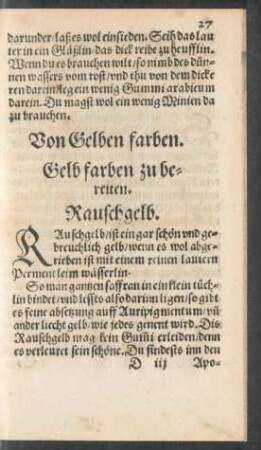 27
darunder/laß es wol einsieden. Seih das lau
ter in ein Gläßlin/das dick reibe zu heufflin.
Wenn du es brauchen wilt/so nimb des dün-
nen wassers vom rost/vnd thu von dem dicke
ren darein/leg ein wenig Gummi arabicum
darein. Du magst wol ein wenig Minien da
zu brauchen.
Von Gelben farben.
Gelb farben zu be-
reiten.
Rauschgelb.
RAuschgelb/ist ein gar schön vnd ge-
breuchlich gelb/wenn es wol abge-
rieben ist mit einem reinen lautern
Perment leim wässerlin.
So man gantzen saffran in ein klein tüch-
lin bindet/vnd lessts also darinn ligen/so gibt
es feine absetzung auff Auripigmentum/vñ
ander liecht gelb/wie jedes genent wird. Dis
Rauschgelb mag kein Gum̃i erleiden/denn
es verleuret sein schöne. Du findests inn den
D iij Apo-